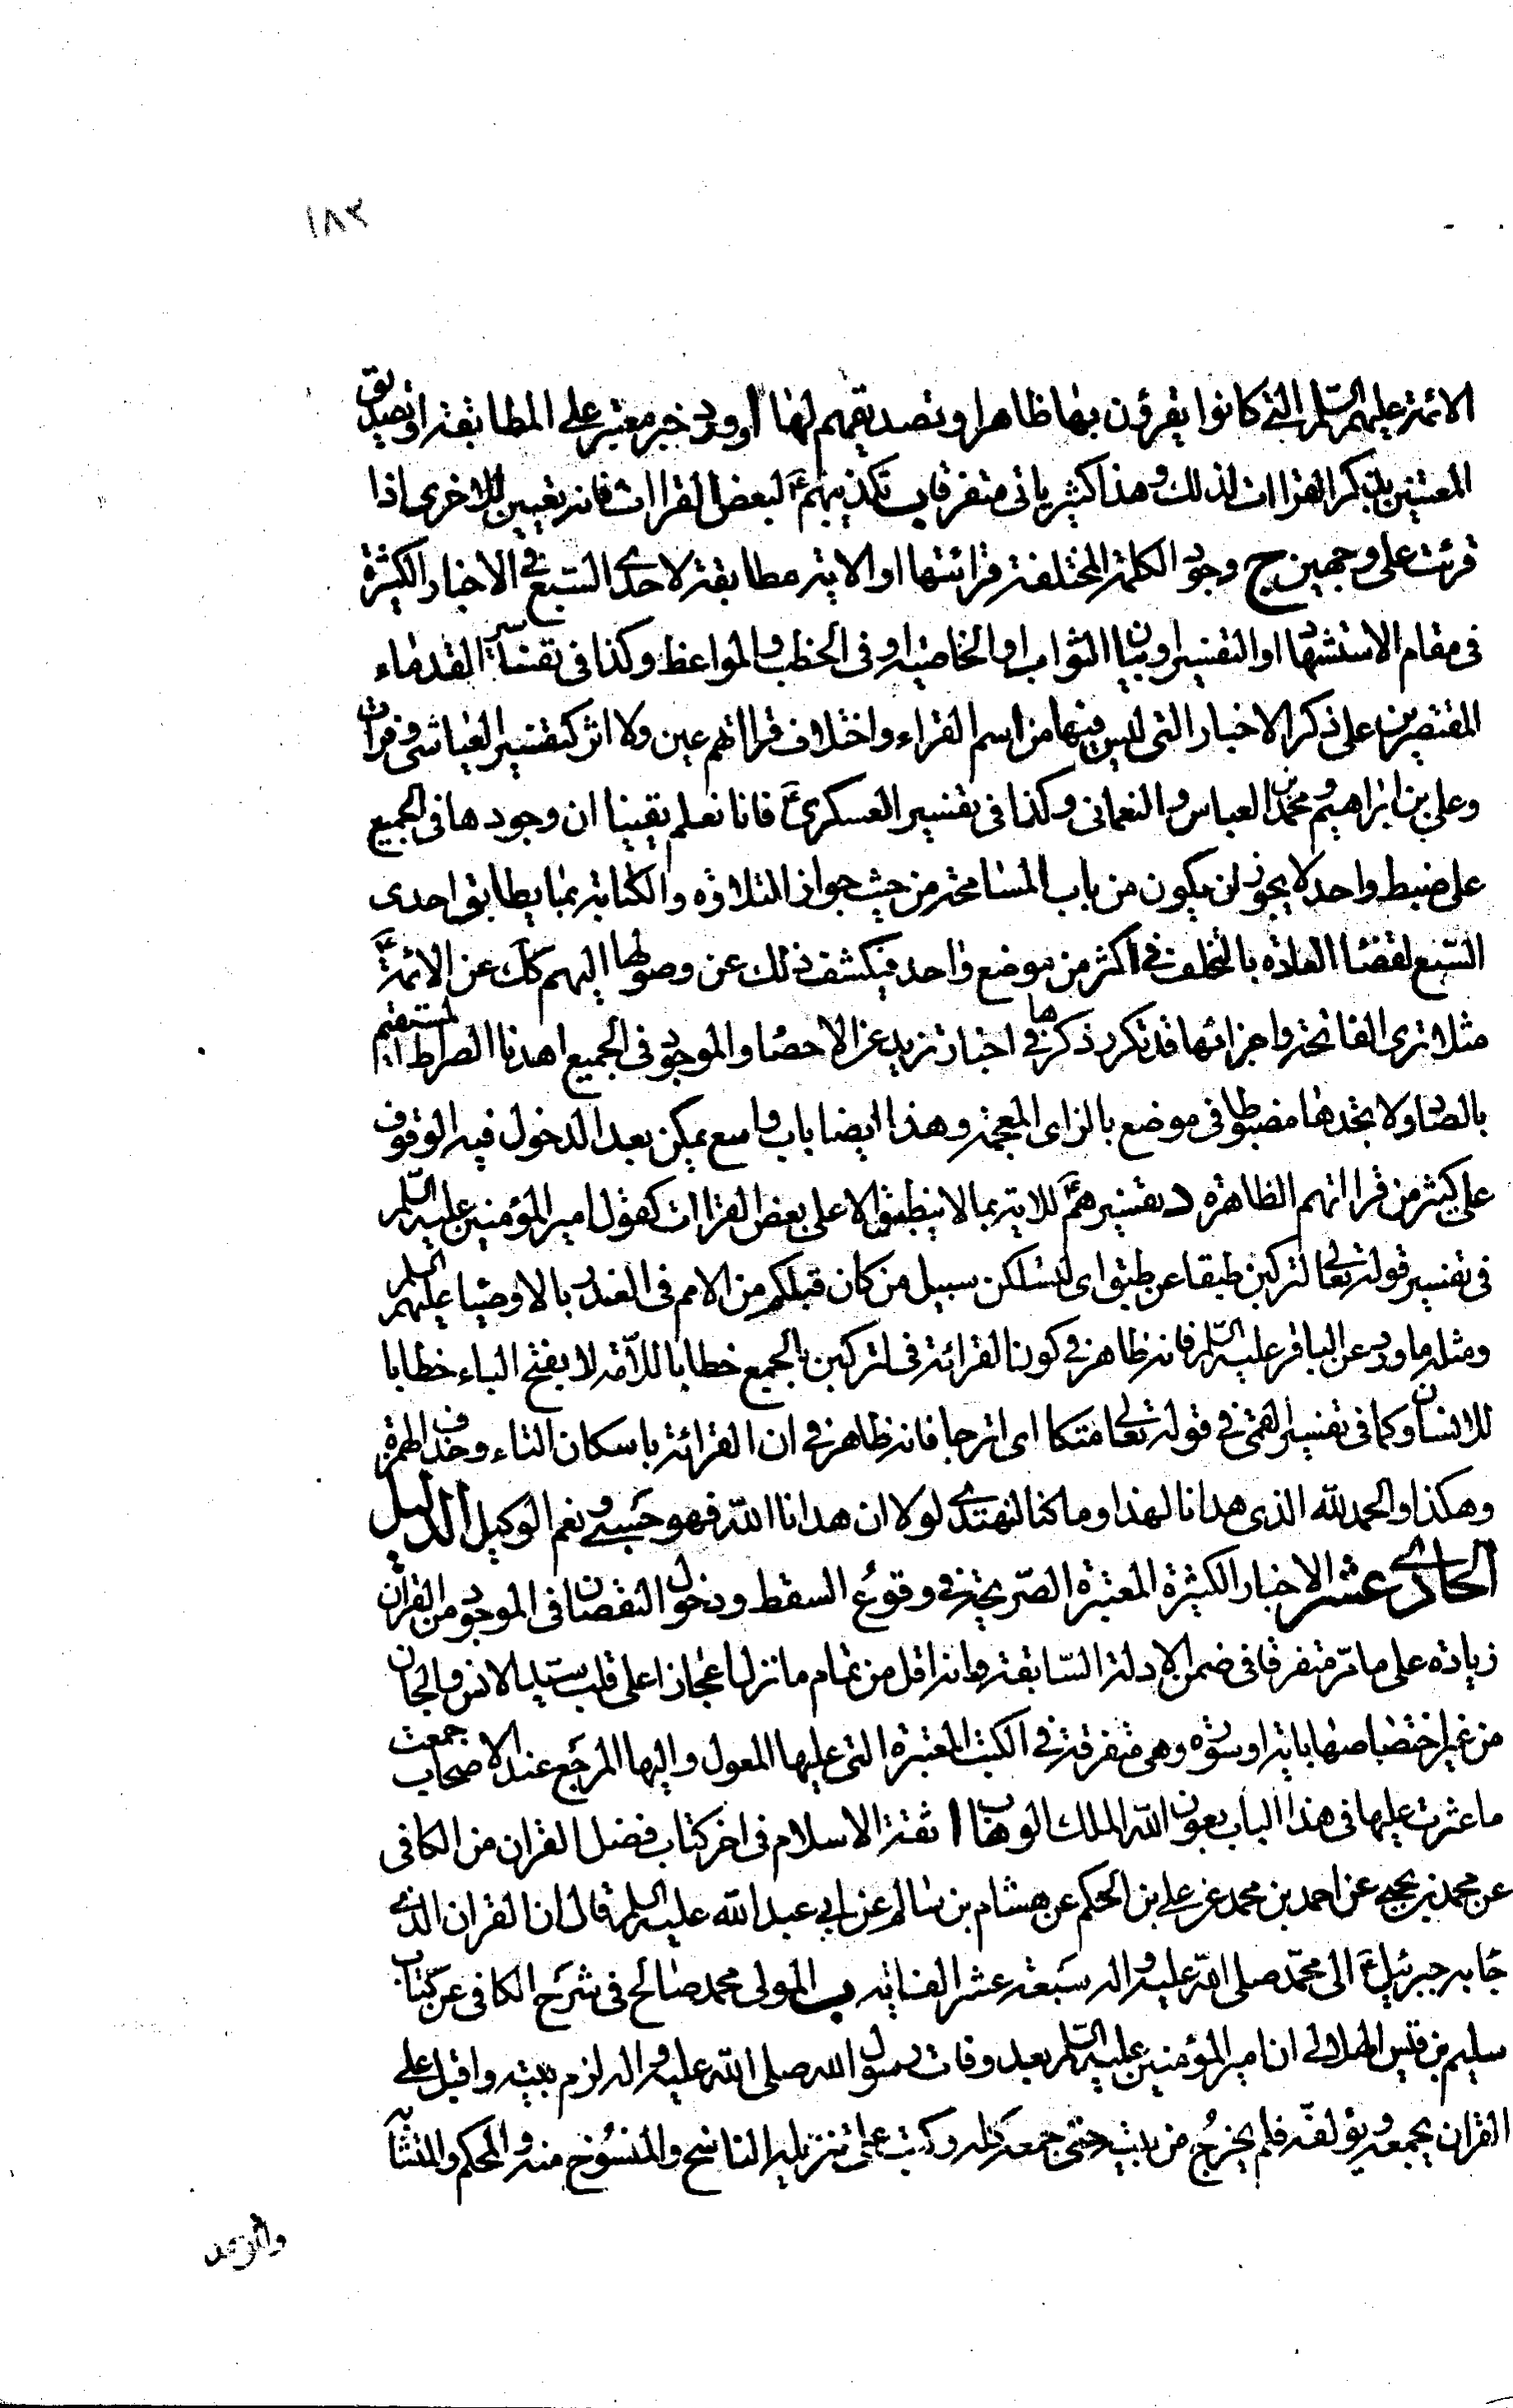 ١٨٢
الائمة عليهم السلم التي كانوا يقرؤن بها ظاهرا وتصديقهم لها او ورد خبر معتبر على المطابقة او تصديق
المعتنين بذكر القراات لذلك وهذا كثير ياتى متفرقا ب تكذيبهم ع لبعض القراات فانه تعيين للاخرى اذا
قرئت على وجهين ج وجود الكلمة المختلفة قرائتها او الاية مطابقة لاحدى السبع في الاخبار الكثيرة
فى مقام الاستشهاد او التفسير او بيان الثواب او الخاصية او فى الخطب والمواعظ وكذا فى تفاسير القدماء
المقتصرين على ذكر الاخبار التى ليس فيها من اسم القراء واختلاف قراائهم عين ولا اثر كتفسير العياشى وفرات
وعلى بن ابراهيم ومحمد بن العباس والنعمانى وكذا فى تفسير العسكرى ع فانا نعلم يقينا ان وجودها فى الجميع
على ضبط واحد لا يجوز ان يكون من باب المسامحة من حيث جواز التلاوة والكتابة بما يطابق احدى
السبع لقضاء العادة بالتخلف في اكثر من موضع واحد فيكشف ذلك عن وصولها اليهم كك عن الائمة ع
مثلا ترى الفاتحة واجزائها قد تكرر ذكرها في اخبار تزيد عن الاحصاء والموجود فى الجميع اهدنا الصراط المستقيم
بالصاد ولا تجدها مضبوطا فى موضع بالزاى المعجمة وهذا ايضا باب واسع يمكن بعد الدخول فيه الوقوف
على كثير من قرااتهم الظاهرة د تفسيرهم ع للاية بما لا ينطبق الا على بعض القراات كقول امير المؤمنين عليه السلم
فى تفسير قوله تعالى لتركبن طبقا عن طبق اى لتسلكن سبيل من كان قبلكم من الامم فى الغدر بالاوصياء عليهم السلم
ومثله ما ورد عن الباقر عليه السلم فانه ظاهر في كون القرائة فى لتركبن بالجمع خطابا للامة لا بفتح الباء خطابا
للانسان وكما فى تفسير القمى في قوله تعالى متكا اى اترجا فانه ظاهر في ان القرائة باسكان التاء وحذف الهمزة
وهكذا والحمد لله الذى هدانا لهذا وما كنا لنهتدى لولا ان هدانا الله فهو حسبى ونعم الوكيل الدليل
الحادى عشر الاخبار الكثيرة المعتبرة الصريحة في وقوع السقط ودخول النقصان فى الموجود من القران
زيادة على ما مر متفرقا فى ضمن الادلة السابقة وانه اقل من تمام ما نزل اعجازا على قلب سيد الانس والجان
من غير اختصاصها باية او سورة وهى متفرقة في الكتب المعتبرة التى عليها المعول واليها المرجع عند الاصحاب جمعت
ما عثرت عليها فى هذا الباب بعون الله الملك الوهاب ا ثقة الاسلام فى اخر كتاب فضل القران من الكافى
عن محمد بن يحيى عن احمد بن محمد عن على بن الحكم عن هشام بن سالم عن ابى عبد الله عليه السلم قال ان القران الذى
جا به جبرئيل ع الى محمد صلى الله عليه واله سبعة عشر الف اية ب المولى محمد صالح فى شرح الكافى عن كتاب
سليم بن قيس الهلالى ان امير المؤمنين عليه السلم بعد وفات رسول الله صلى الله عليه واله لزم بيته واقبل على
القران يجمعه ويؤلفه فلم يخرج من بيته حتى جمعه كله وكتب على تنزيله الناسخ والمنسوخ منه والمحكم والمتشابه
والوعد